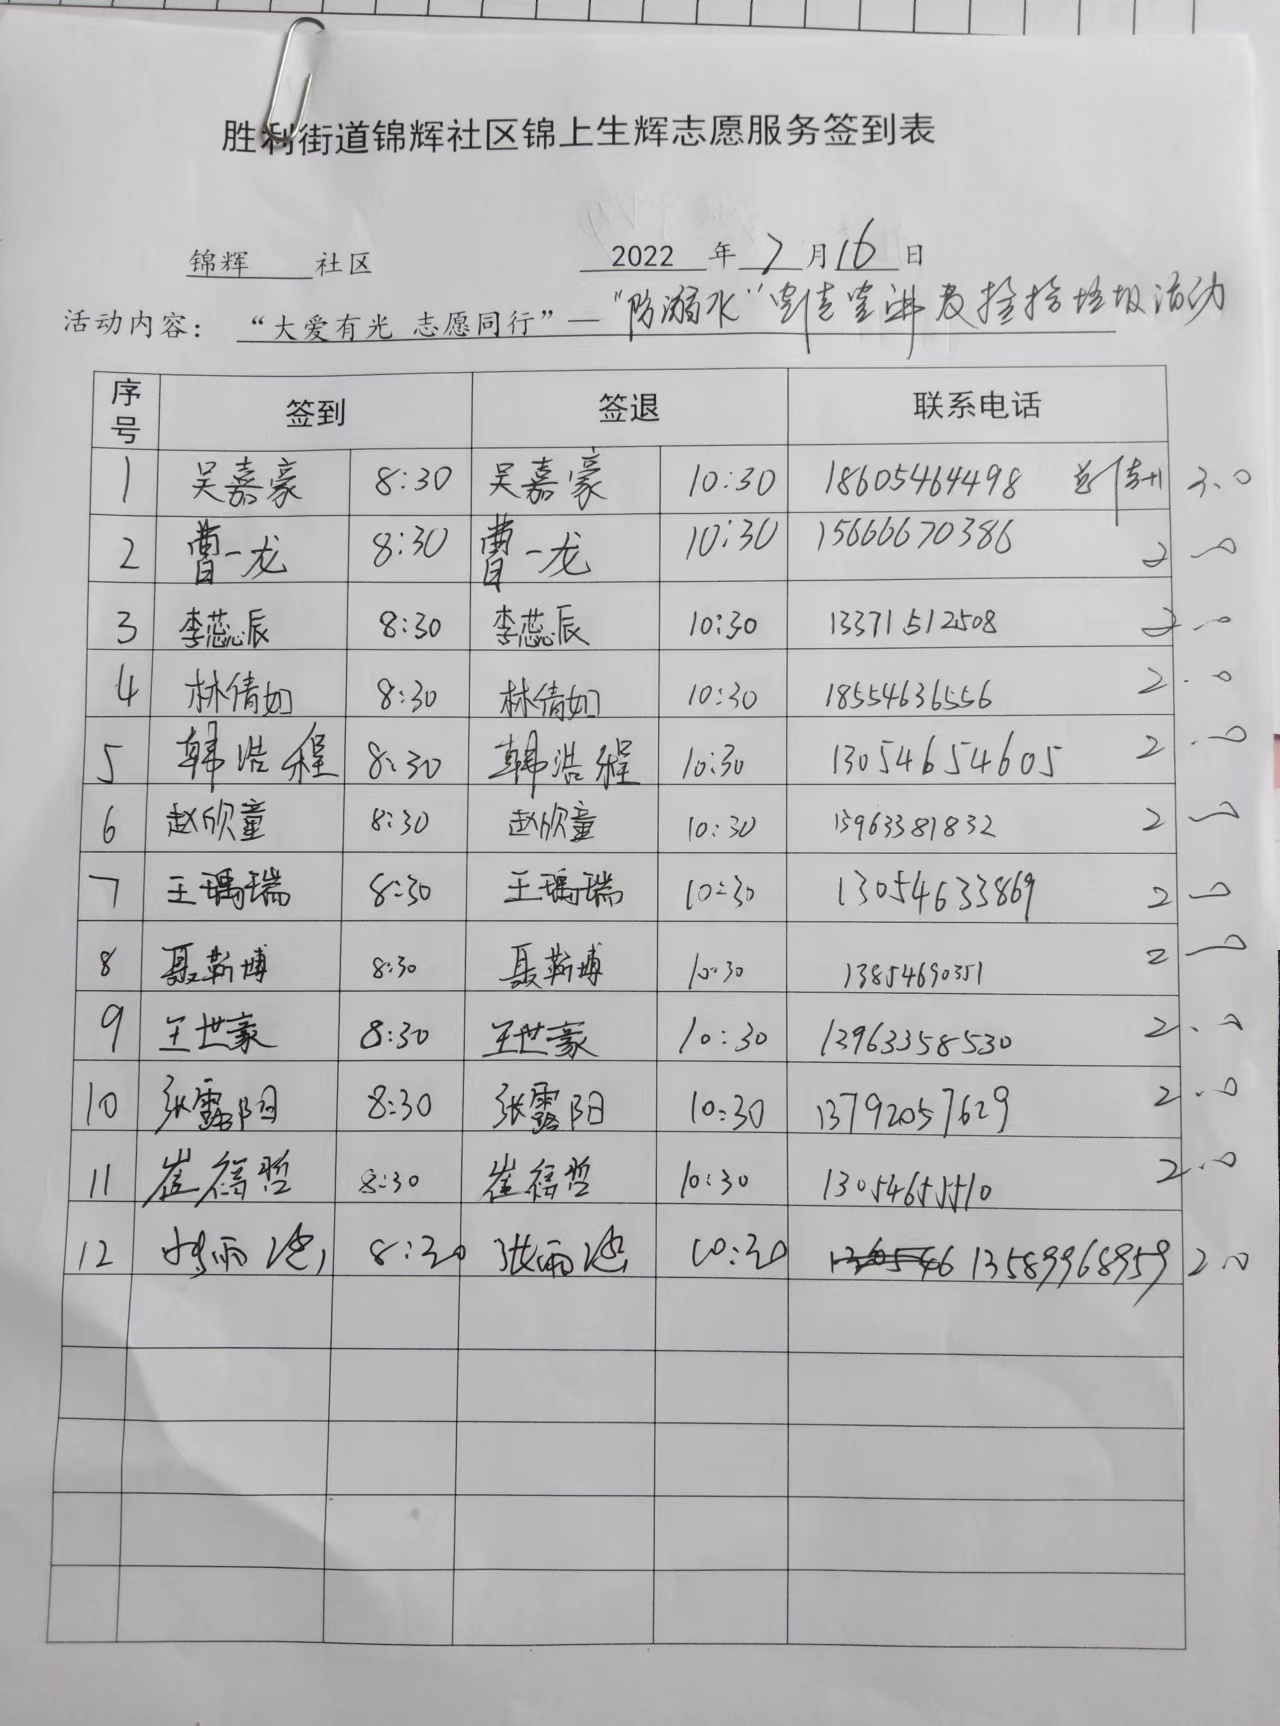 胜利街道锦辉社区锦上生辉志愿服务签到表
锦辉 社区 2022 年 7 月 16 日
活动内容： “大爱有光 志愿同行”— “防溺水”宣传宣讲及捡拾垃圾活动
序号 签到 签退 联系电话
1 吴嘉豪 8:30 吴嘉豪 10:30 18605464498 3.0
2 曹一龙 8:30 曹一龙 10:30 15666670386 2.0
3 李蕊辰 8:30 李蕊辰 10:30 13371512508 2.0
4 林倩如 8:30 林倩如 10:30 18554636556 2.0
5 韩浩程 8:30 韩浩程 10:30 13054654605 2.0
6 赵欣童 8:30 赵欣童 10:30 15963381832 2.0
7 王瑀瑞 8:30 王瑀瑞 10:30 13054633869 2.0
8 聂斯博 8:30 聂斯博 10:30 13854690351 2.0
9 王世豪 8:30 王世豪 10:30 13963358530 2.0
10 张露阳 8:30 张露阳 10:30 13792057629 2.0
11 崔 哲 8:30 崔 哲 10:30 13054655510 2.0
12 张雨 8:30 张雨 10:30 13589968959 2.0